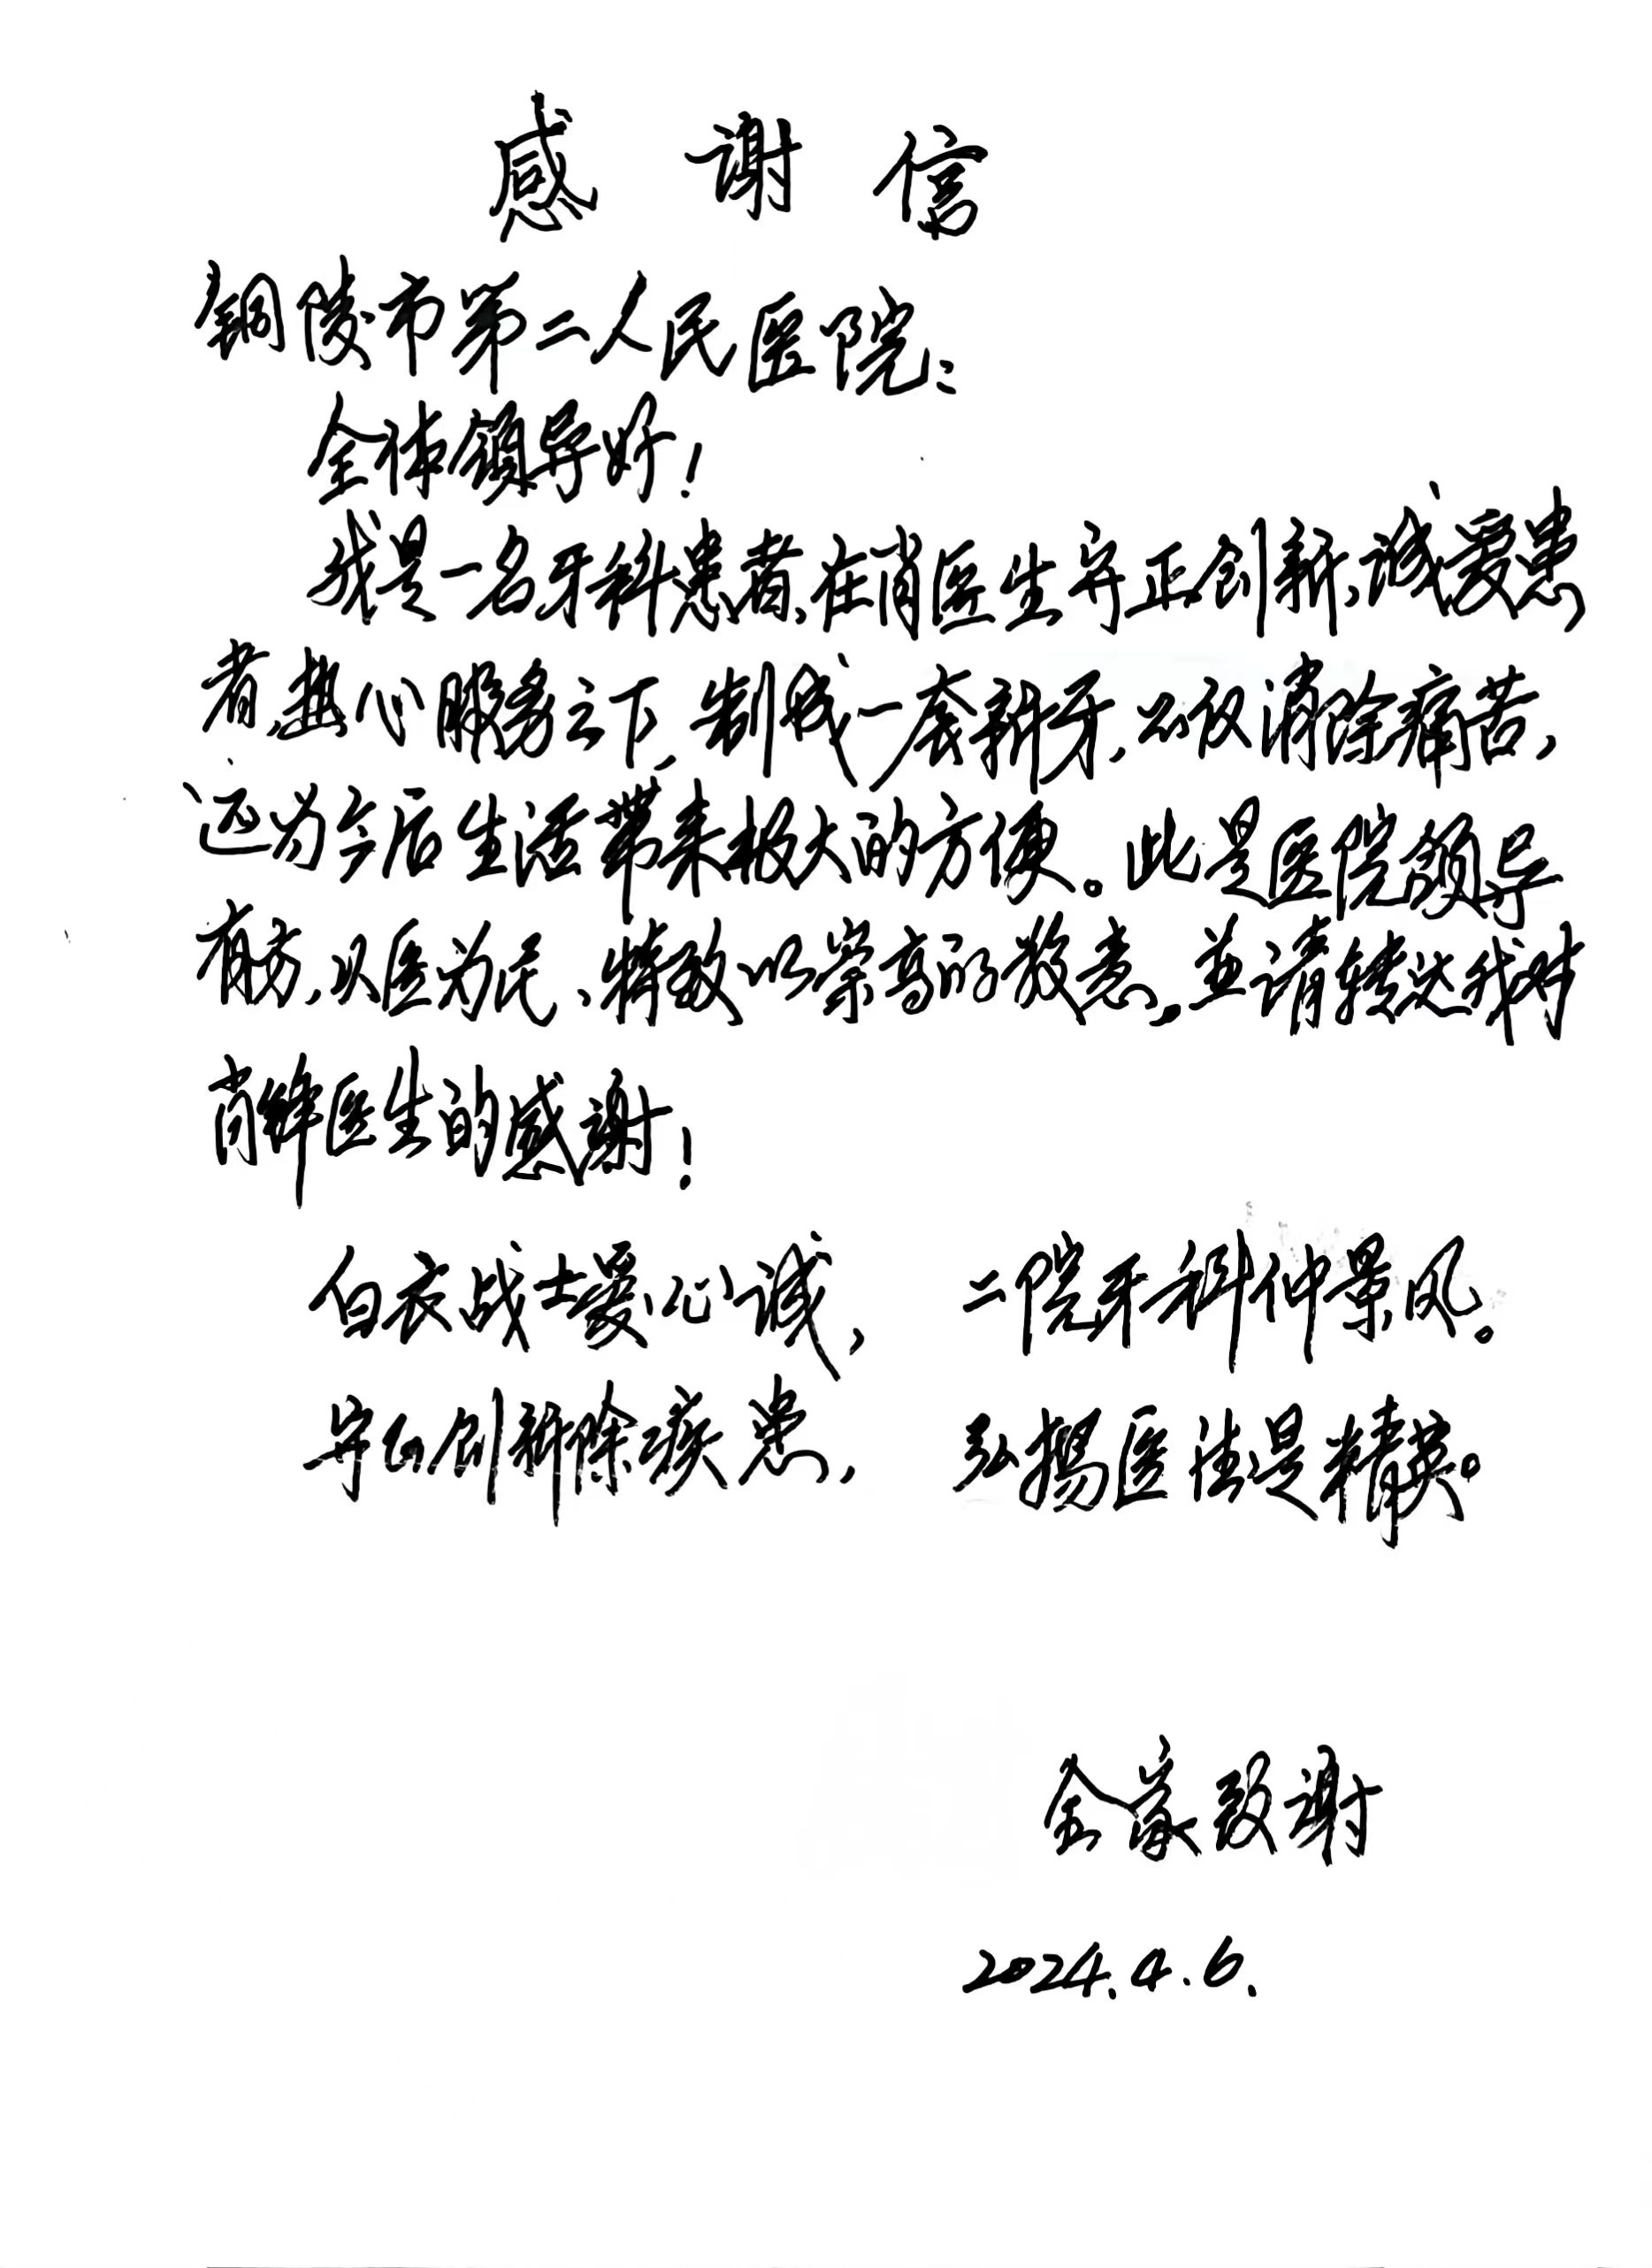 感谢信
铜陵市第二人民医院：
全体领导好！
我是一名牙科患者，在肖医生守正创新，诚爱患
者，热心服务之下，制成一套新牙，不仅消除痛苦，
还为今后生活带来极大的方便。此是医院领导
有方，从医为民，特致以崇高的敬意，並请转达我对
肖医生的感谢！
白衣战士爱心诚，　二院牙科仲景风。
守正创新除疾患，　弘揚医德是精英。
全家致谢
2024.4.6.